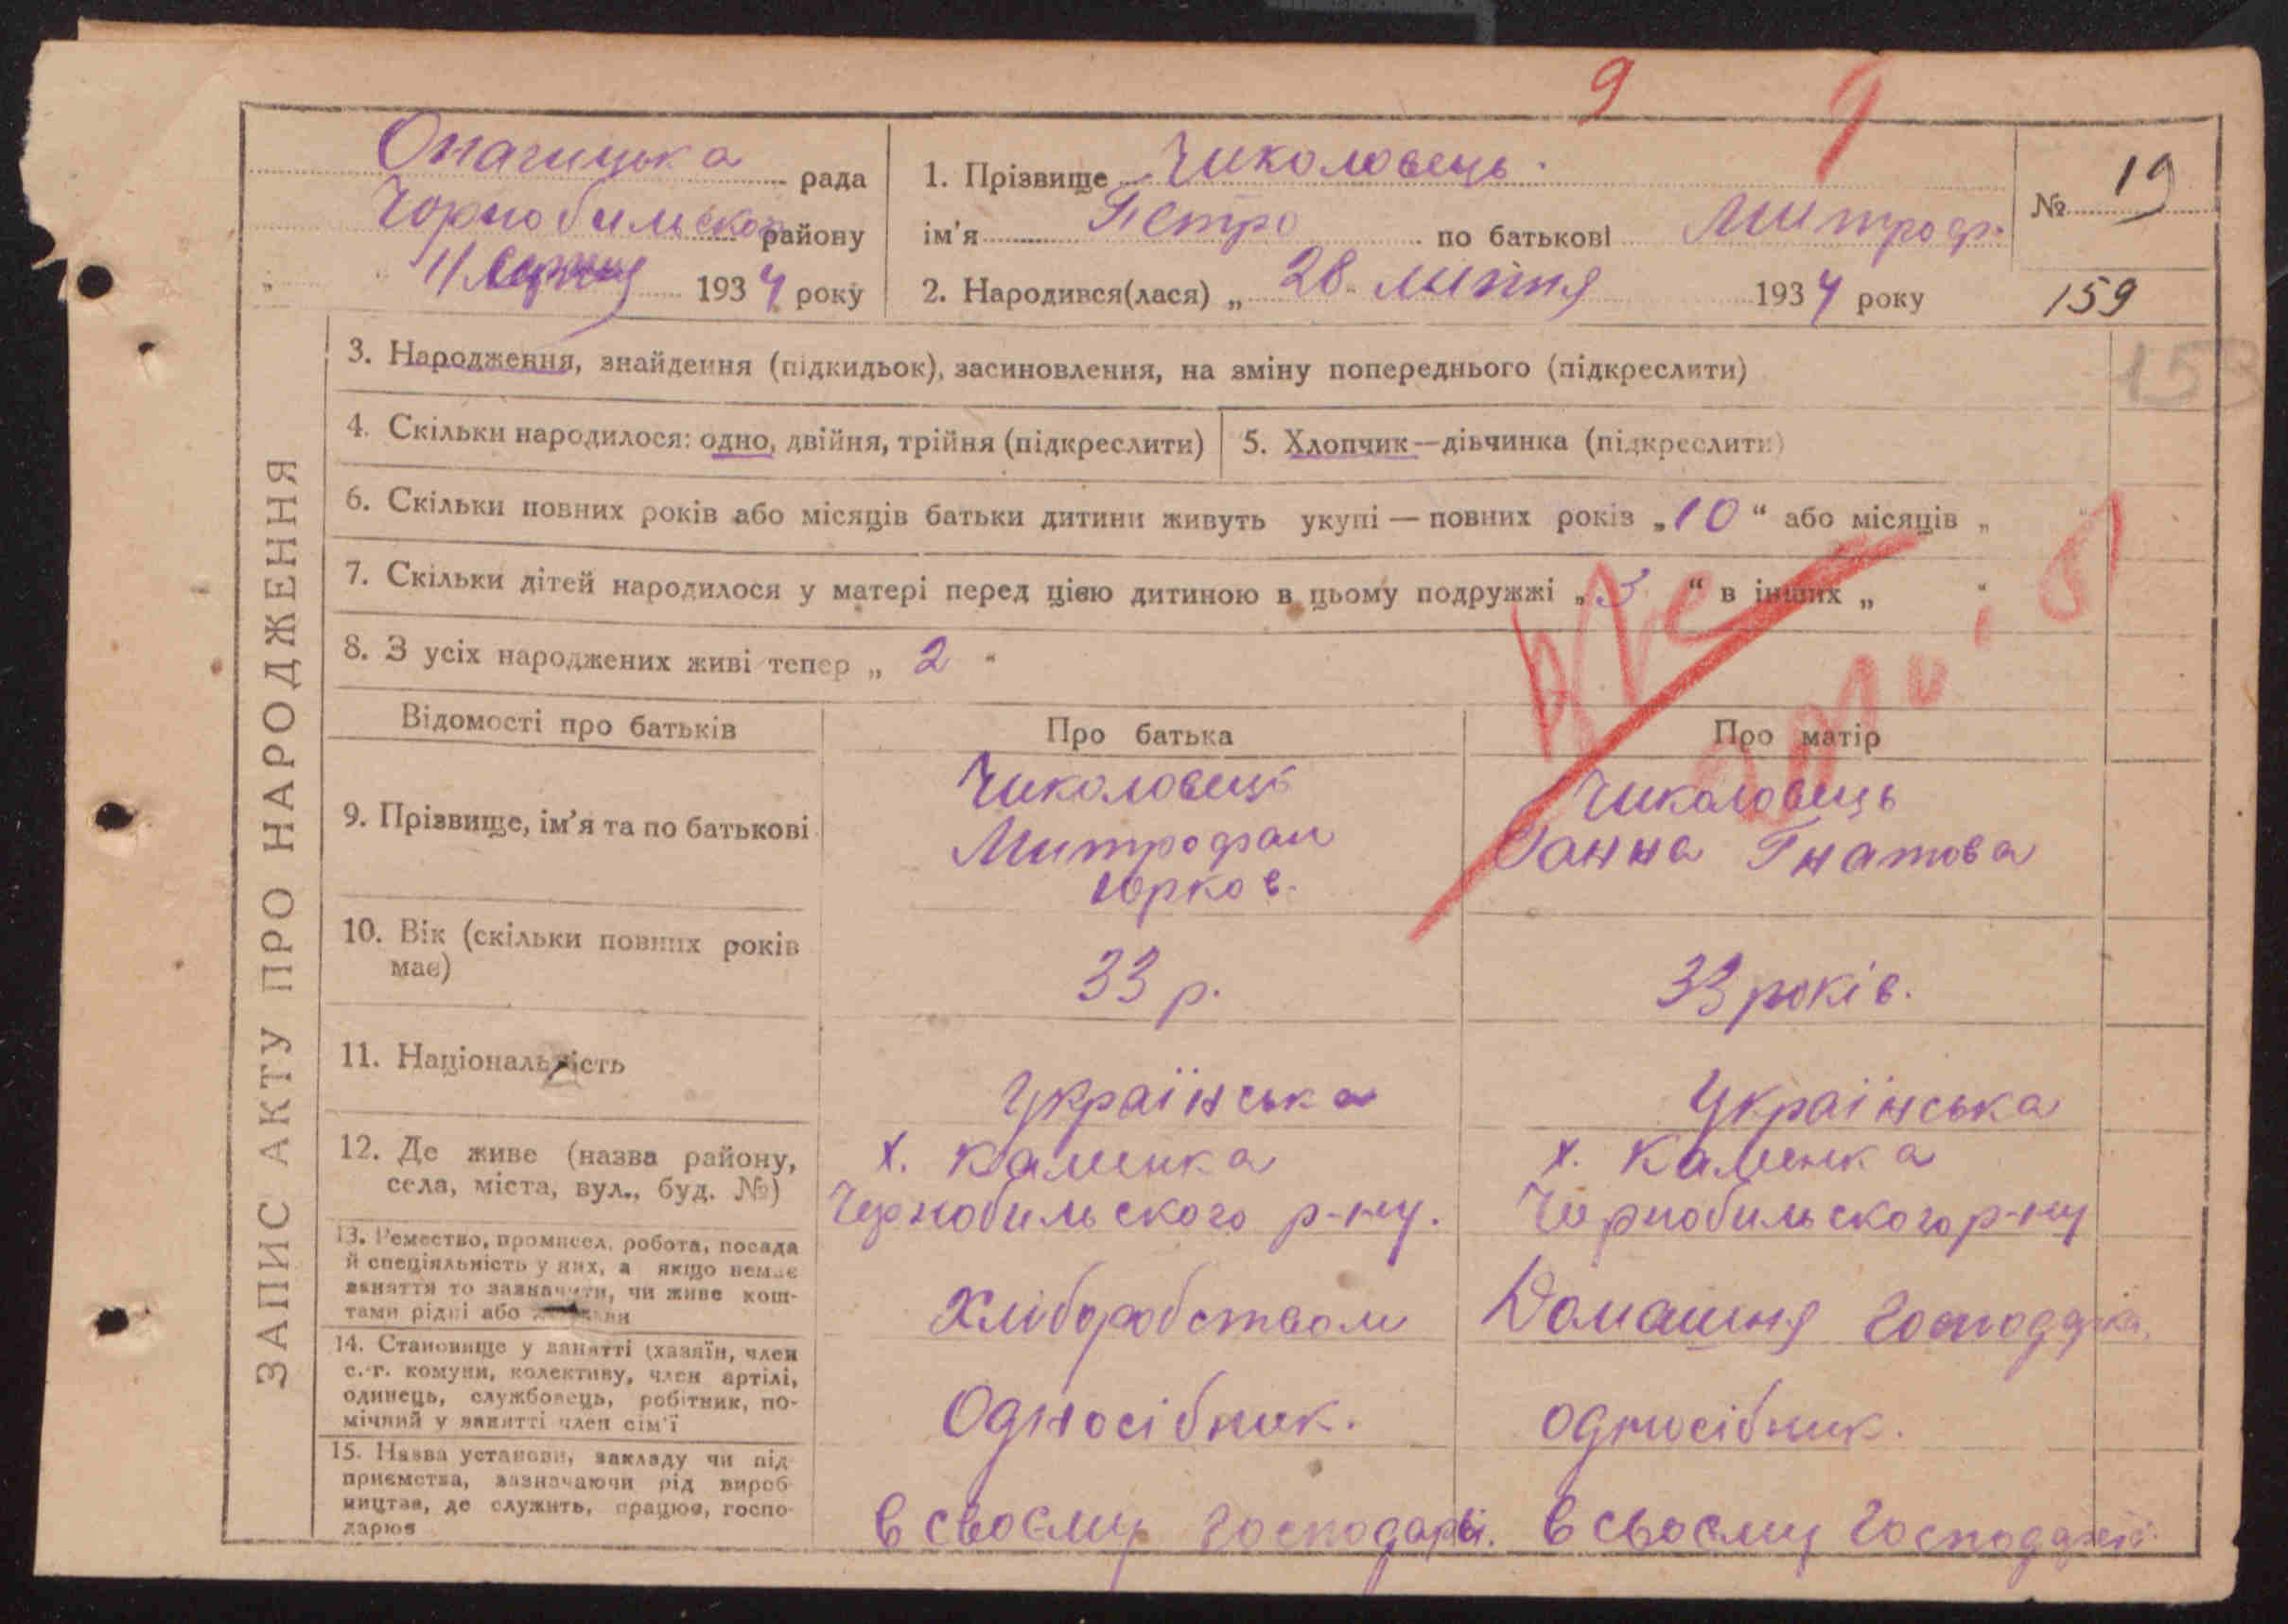 9 9
Опачицька рада
Чорнобильског району
" 11 Серпня 1934 року
1. Прізвище Чиколовець.
ім'я Петро по батькові Митроф.
2. Народився(лася) „ 28 липня 1934 року
№ 19
159
153
ЗАПИС АКТУ ПРО НАРОДЖЕННЯ
3. Народження, знайдення (підкидьок), засиновлення, на зміну попереднього (підкреслити)
4. Скільки народилося: одно, двійня, трійня (підкреслити) 5. Хлопчик—дівчинка (підкреслити)
6. Скільки повних років або місяців батьки дитини живуть укупі — повних років „10“ або місяців „ “
7. Скільки дітей народилося у матері перед цією дитиною в цьому подружжі „3“ в інших „ “
8. З усіх народжених живі тепер „ 2 “
Відомості про батьків Про батька Про матір
9. Прізвище, ім'я та по батькові
Чиколовець
Митрофан
Юрков.
Чиколовець
Ганна Гнатова
10. Вік (скільки повних років
має)
33 р.
33 років.
11. Національність
Українська
Українська
12. Де живе (назва району,
села, міста, вул., буд. №)
х. Каменка
Чорнобильского р-ну.
х. Каменка
Чорнобильского р-ну
13. Ремество, промисел, робота, посада
й спеціяльність у них, а якщо немає
заняття то зазначити, чи живе кош-
тами рідні або держави
Хліборобством
Домашня господарка,
14. Становище у занятті (хазяїн, член
с.-г. комуни, колективу, член артілі,
одинець, службовець, робітник, по-
мічний у занятті член сім'ї
Односібник.
односібник.
15. Назва установи, закладу чи під
приємства, зазначаючи рід вироб
ництва, де служить, працює, госпо-
дарює
в своєму господарві.
в своєму господарстві